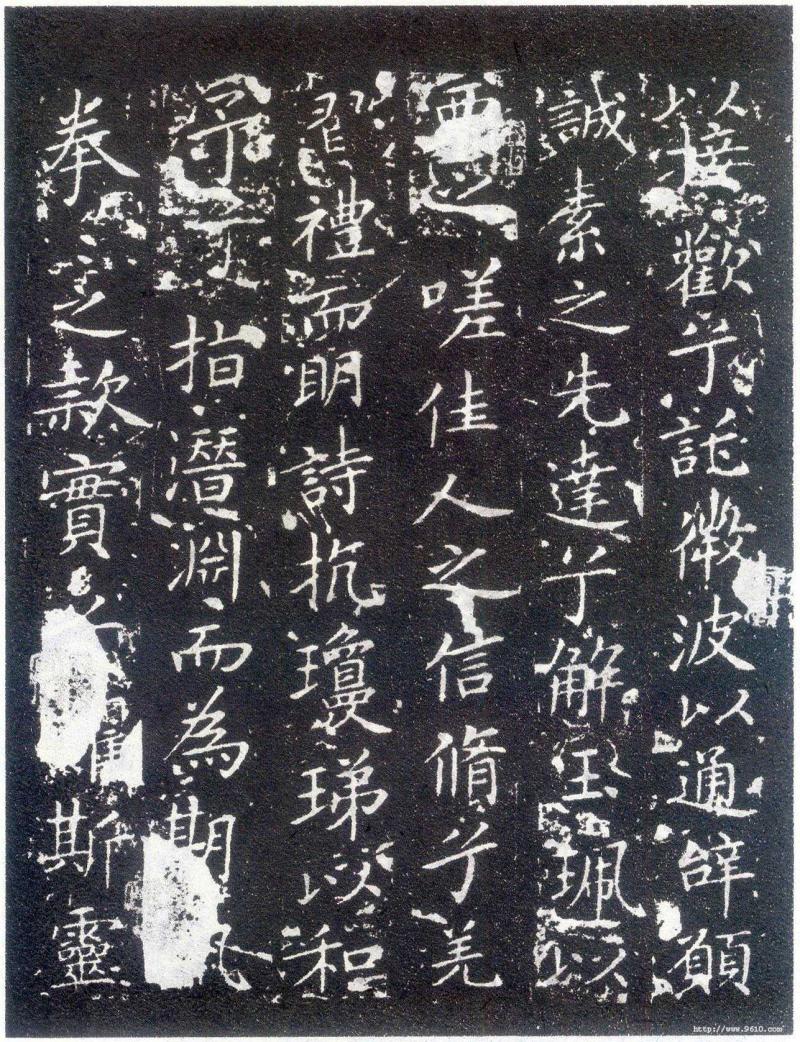 以接歡兮託微波以通辭願
誠素之先達兮解玉珮以
要之嗟佳人之信脩兮羌
習禮而明詩抗瓊珶以和
予兮指潛淵而為期
拳之款實兮斯靈
http://www.9610.com